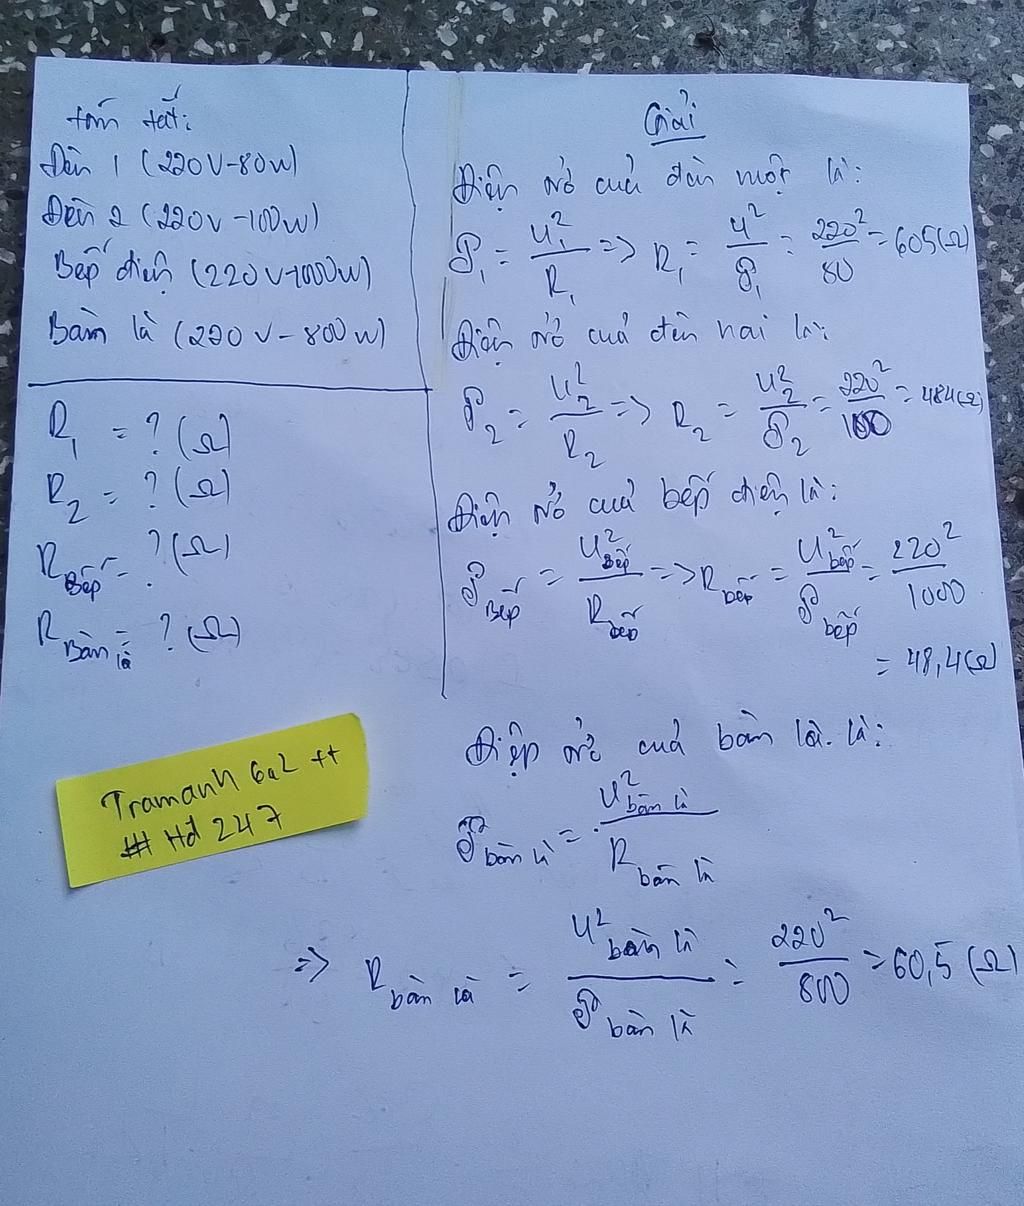 tóm tắt:
Đèn 1 (220V-80W)
Đèn 2 (220V-100W)
Bếp điện (220V-1000W)
Bàn là (220V-800W)
R₁ = ? (Ω)
R₂ = ? (Ω)
R Bếp = ? (Ω)
R Bàn là = ? (Ω)
Giải
Điện trở của đèn một là:
P₁ = U₁²/R₁ => R₁ = U²/P₁ = 220²/80 = 605(Ω)
Điện trở của đèn hai là:
P₂ = U₂²/R₂ => R₂ = U₂²/P₂ = 220²/100 = 484(Ω)
Điện trở của bếp điện là:
P Bếp = U² Bếp/R bếp => R bếp = U² bếp/P bếp = 220²/1000
= 48,4(Ω)
Điện trở của bàn là là:
P bàn là = U² bàn là/R bàn là
=> R bàn là = U² bàn là/P bàn là = 220²/800 = 60,5 (Ω)
Tramanh 6a2 tt
# Hđ 247